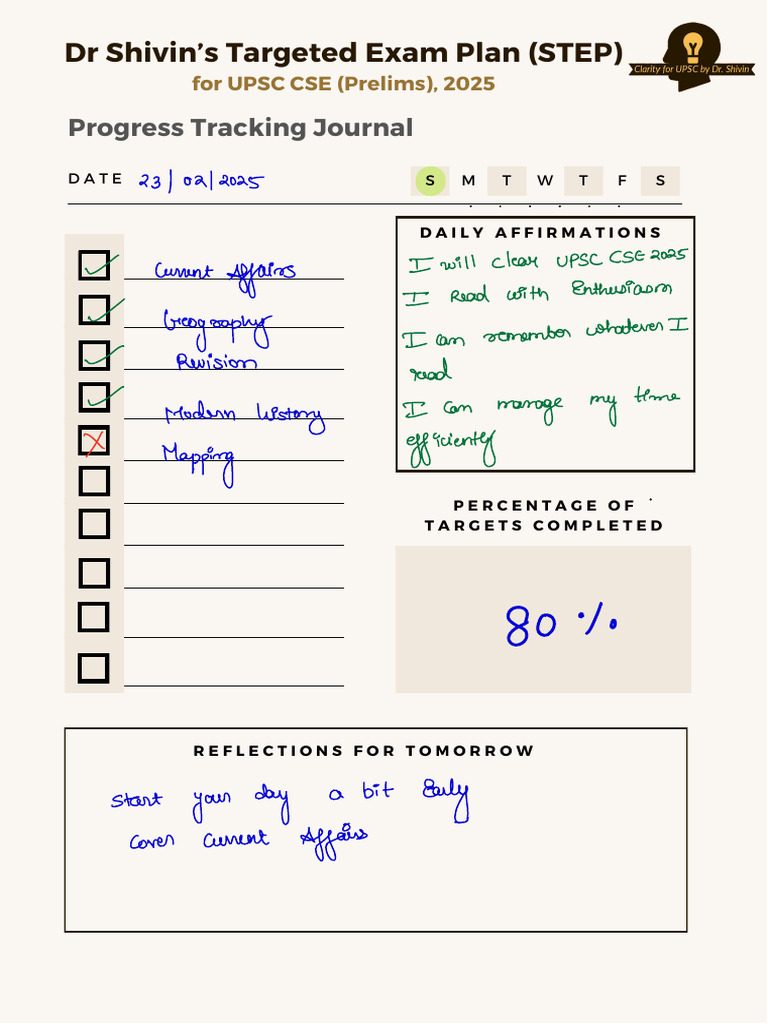 Dr Shivin's Targeted Exam Plan (STEP)
for UPSC CSE (Prelims), 2025
Clarity for UPSC by Dr. Shivin
Progress Tracking Journal
DATE 23/02/2025
S M T W T F S
Current Affairs
Geography
Revision
Modern History
Mapping
DAILY AFFIRMATIONS
I will clear UPSC CSE 2025
I Read with Enthusiasm
I can remember whatever I
read
I can manage my time
efficiently
PERCENTAGE OF
TARGETS COMPLETED
80 %
REFLECTIONS FOR TOMORROW
Start your day a bit Early
Cover Current Affairs